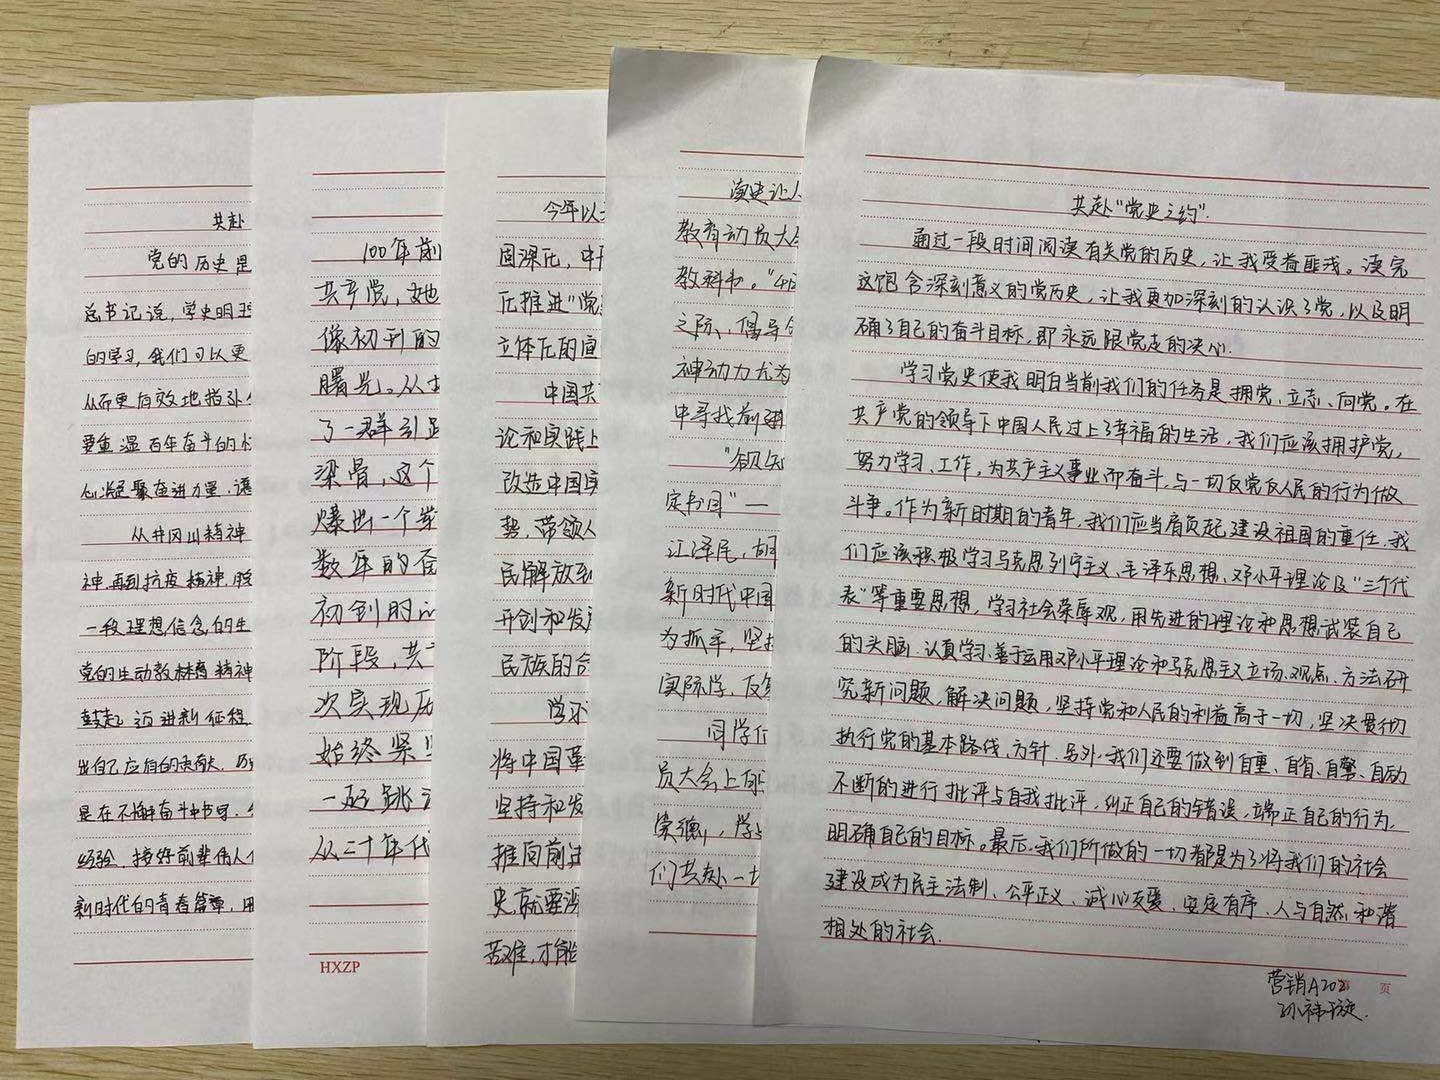 共赴
党的历史是
总书记说,学史明理
的学习,我们可以更
从而更有效地指引
要重温百年奋斗的
心凝聚奋进力量,
从井冈山精神
神,再到抗疫精神,
一段理想信念的生
党的生动教材,精神
鼓起迈进新征程
出自己应有的贡献,历
是在不懈奋斗中书写,
经验,接好前辈伟人
新时代的青春篇章,用
100年前
共产党,她
像初升的
曙光。从
了一群引
梁骨,这个
爆出一个
数年的奋
初创时
阶段,共
次实现历
始终紧
一起跳
从二十年代
HXZP
今年以
固深化,中
化推进"党
立体化的宣
中国共
论和实践上
改造中国
势,带领人
民解放
开创和发
民族的
学习
将中国革
坚持和发
推向前进
史就要深
苦难,才能
读史让人
教育动员大会
教科书。"
之际,倡导
神动力尤为
中寻找前进
定书目"一
江泽民,胡
新时代中国
为抓手,坚持
实际学,反复
同学们
员大会上
崇德,学史
们共赴一场
共赴"党史之约".
通过一段时间阅读有关党的历史,让我受益匪浅。读完
这饱含深刻意义的党历史,让我更加深刻的认识了党,以及明
确了自己的奋斗目标,即永远跟党走的决心.
学习党史使我明白当前我们的任务是拥党、立志、向党。在
共产党的领导下中国人民过上了幸福的生活,我们应该拥护党,
努力学习、工作,为共产主义事业而奋斗,与一切反党反人民的行为做
斗争。作为新时期的青年,我们应当肩负起建设祖国的重任.我
们应该积极学习马克思列宁主义、毛泽东思想、邓小平理论及"三个代
表"等重要思想,学习社会荣辱观,用先进的理论和思想武装自己
的头脑.认真学习.善于运用邓小平理论和马克思主义立场.观点.方法研
究新问题,解决问题,坚持党和人民的利益高于一切,坚决贯彻
执行党的基本路线、方针.另外.我们还要做到自重、自省、自警、自励
不断的进行批评与自我批评,纠正自己的错误,端正自己的行为,
明确自己的目标。最后.我们所做的一切都是为了将我们的社会
建设成为民主法制、公平正义、诚心友爱、安定有序、人与自然和谐
相处的社会.
页
营销A202